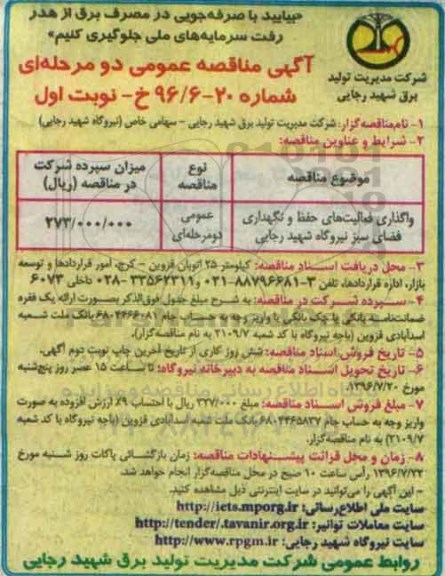 «بیایید با صرفه‌جویی در مصرف برق از هدر
رفت سرمایه‌های ملی جلوگیری کنیم»
شرکت مدیریت تولید
برق شهید رجایی
آگهی مناقصه عمومی دو مرحله‌ای
شماره ۲۰-۹۶/۶ خ- نوبت اول
۱- نام مناقصه‌گزار: شرکت مدیریت تولید برق شهید رجایی - سهامی خاص (نیروگاه شهید رجایی)
۲- شرایط و عناوین مناقصه:
موضوع مناقصه
نوع مناقصه
میزان سپرده شرکت در مناقصه (ریال)
واگذاری فعالیت‌های حفظ و نگهداری فضای سبز نیروگاه شهید رجایی
عمومی دومرحله‌ای
۲۷۳/۰۰۰/۰۰۰
۳- محل دریافت اسناد مناقصه: کیلومتر ۲۵ اتوبان قزوین - کرج، امور قراردادها و توسعه
بازار، اداره قراردادها، تلفن ۳-۸۸۷۹۶۶۸۱-۰۲۱ و ۳۳۵۶۲۳۱۱-۰۲۸ داخلی ۶۰۷۳
۴- سپرده شرکت در مناقصه: به شرح مبلغ جدول فوق‌الذکر بصورت ارائه یک فقره
ضمانتنامه بانکی یا چک بانکی یا واریز وجه به حساب جام ۶۸۰۴۶۶۶۰۸۱ بانک ملت شعبه
اسدآبادی قزوین (باجه نیروگاه با کد شعبه ۲۱۰۹/۷ به نام مناقصه‌گزار).
۵- تاریخ فروش اسناد مناقصه: شش روز کاری از تاریخ آخرین چاپ نوبت دوم آگهی.
۶- تاریخ تحویل اسناد مناقصه به دبیرخانه نیروگاه: تا ساعت ۱۵ عصر روز پنج‌شنبه
مورخ ۱۳۹۶/۷/۲۰
۷- مبلغ فروش اسناد مناقصه: مبلغ ۳۲۷/۰۰۰ ریال با احتساب ۹٪ ارزش افزوده به صورت
واریز وجه به حساب جام ۶۸۰۴۴۶۵۸۳۷ بانک ملت شعبه اسدآبادی قزوین (باجه نیروگاه با کد شعبه
۲۱۰۹/۷) به نام مناقصه‌گزار.
۸- زمان و محل قرائت پیشنهادات مناقصه: زمان بازگشائی پاکات روز شنبه مورخ
۱۳۹۶/۷/۲۲ رأس ساعت ۱۰ صبح در محل مناقصه‌گزار انجام خواهد شد.
- این آگهی را می‌توانید در سایت اینترنتی ذیل مشاهده کنید.
سایت ملی اطلاع‌رسانی: http://iets.mporg.ir
سایت معاملات توانیر: http://tender/.tavanir.org.ir
سایت نیروگاه شهید رجایی: http://www.rpgm.ir
روابط عمومی شرکت مدیریت تولید برق شهید رجایی